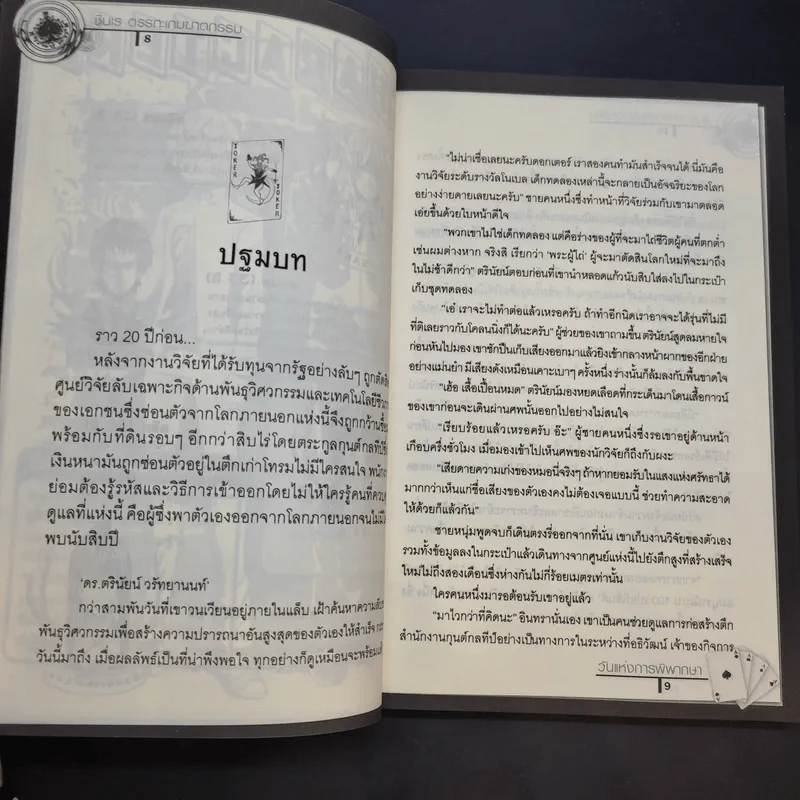 ชินเร ตรรกะเกมฆาตกรรม
8
JOKER
JOKER
ปฐมบท
ราว 20 ปีก่อน...
หลังจากงานวิจัยที่ได้รับทุนจากรัฐอย่างลับๆ ถูกตัด
ศูนย์วิจัยลับเฉพาะกิจด้านพันธุวิศวกรรมและเทคโนโลยี
ของเอกชนซึ่งซ่อนตัวจากโลกภายนอกแห่งนี้จึงถูกกว้าน
พร้อมกับที่ดินรอบๆ อีกกว่าสิบไร่โดยตระกูลกุนต์กลที
เงินหนามันถูกซ่อนตัวอยู่ในตึกเก่าโทรมไม่มีใครสนใจ
ย่อมต้องรู้รหัสและวิธีการเข้าออกโดยไม่ให้ใครรู้คนที่
ดูแลที่แห่งนี้ คือผู้ซึ่งพาตัวเองออกจากโลกภายนอกจนไม่มี
พบนับสิบปี
'ดร.ตรินัยน์ วรัทยานนท์'
กว่าสามพันวันที่เขาวนเวียนอยู่ภายในแล็บ เฝ้าค้นหาความ
พันธุวิศวกรรมเพื่อสร้างความปรารถนาอันสูงสุดของตัวเองให้สำเร็จ
วันนี้มาถึง เมื่อผลลัพธ์เป็นที่น่าพึงพอใจ ทุกอย่างก็ดูเหมือนจะพร้อม
"ไม่น่าเชื่อเลยนะครับดอกเตอร์ เราสองคนทำมันสำเร็จจนได้ นี่มันคือ
งานวิจัยระดับรางวัลโนเบล เด็กทดลองเหล่านี้จะกลายเป็นอัจฉริยะของโลก
อย่างง่ายดายเลยนะครับ" ชายคนหนึ่งซึ่งทำหน้าที่วิจัยร่วมกับเขามาตลอด
เอ่ยขึ้นด้วยใบหน้าดีใจ
"พวกเขาไม่ใช่เด็กทดลอง แต่คือร่างของผู้ที่จะมาไถ่ชีวิตผู้คนที่ตกต่ำ
เช่นผมต่างหาก จริงสิ เรียกว่า 'พระผู้ไถ่' ผู้จะมาตัดสินโลกใหม่ที่จะมาถึง
ในไม่ช้าดีกว่า" ตรินัยน์ตอบก่อนที่เขานำหลอดแก้วนับสิบใส่ลงไปในกระเป๋า
เก็บชุดทดลอง
"เอ๋ เราจะไม่ทำต่อแล้วเหรอครับ ถ้าทำอีกนิดเราอาจจะได้รุ่นที่ไม่มี
ที่ติเลยราวกับโคลนนิ่งก็ได้นะครับ" ผู้ช่วยของเขาถามขึ้น ตรินัยน์สูดลมหายใจ
ก่อนหันไปมอง เขาชักปืนเก็บเสียงออกมาแล้วยิงเข้ากลางหน้าผากของอีกฝ่าย
อย่างแม่นยำ มีเสียงดังเหมือนเคาะเบาๆ ครั้งหนึ่ง ร่างนั้นก็ล้มลงกับพื้นขาดใจ
"เฮ้อ เสื้อเปื้อนหมด" ตรินัยน์มองหยดเลือดที่กระเด็นมาโดนเสื้อกาวน์
ของเขาก่อนจะเดินผ่านศพนั้นออกไปอย่างไม่สนใจ
"เรียบร้อยแล้วเหรอครับ อ๊ะ" ผู้ชายคนหนึ่งซึ่งรอเขาอยู่ด้านหน้า
เกือบครึ่งชั่วโมง เมื่อมองเข้าไปเห็นศพของนักวิจัยก็ถึงกับผงะ
"เสียดายความเก่งของหมอนี่จริงๆ ถ้าหากยอมรับในแสงแห่งศรัทธาได้
มากกว่าเห็นแก่ชื่อเสียงของตัวเองคงไม่ต้องเจอแบบนี้ ช่วยทำความสะอาด
ให้ด้วยก็แล้วกัน"
ชายหนุ่มพูดจบก็เดินตรงรี่ออกจากที่นั่น เขาเก็บงานวิจัยของตัวเอง
รวมทั้งข้อมูลลงในกระเป๋าแล้วเดินทางจากศูนย์แห่งนี้ไปยังตึกสูงที่สร้างเสร็จ
ใหม่ไม่ถึงสองเดือนซึ่งห่างกันไม่กี่ร้อยเมตรเท่านั้น
ใครคนหนึ่งมารอต้อนรับเขาอยู่แล้ว
"มาไวกว่าที่คิดนะ" อินทรานั่นเอง เขาเป็นคนช่วยดูแลการก่อสร้างตึก
สำนักงานกุนต์กลทีป์อย่างเป็นทางการในระหว่างที่อธิวัฒน์ เจ้าของกิจการ
วันแห่งการพิพากษา
9